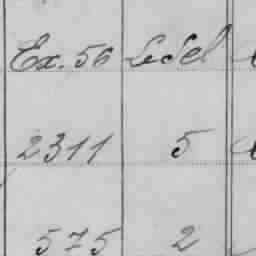 Ex. 56 LeSel
2311 5
575 2